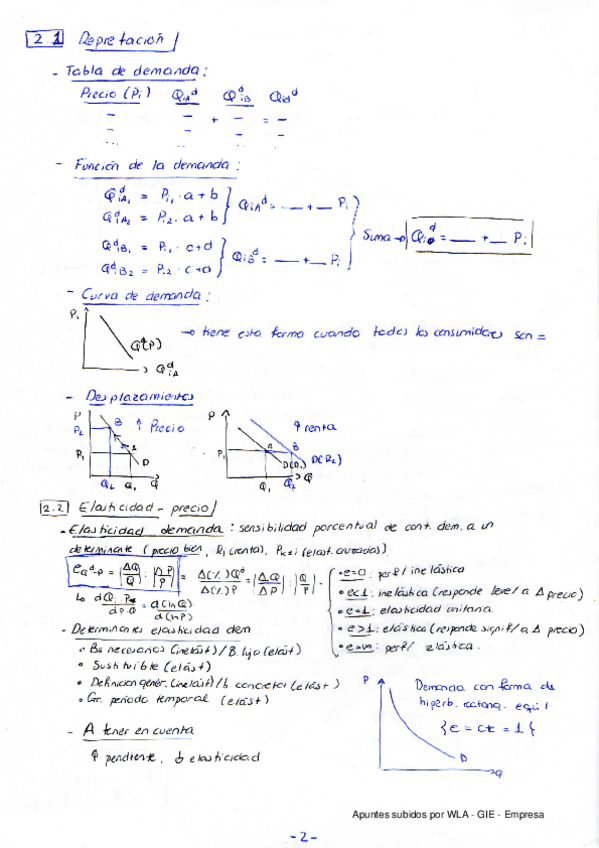 2.1 Repretación
- Tabla de demanda:
Precio (Pi) QiA^d QiB^d Qiθ^d
- - + - = -
- - - -
... ...
- Función de la demanda:
Q^d iA1 = Pi1 · a + b
Q^d iA2 = Pi2 · a + b } QiA^d = __ + __ Pi
Q^d iB1 = Pi1 · c + d
Q^d iB2 = Pi2 · c + d } QiB^d = __ + __ Pi } Suma → Qiθ^d = __ + __ Pi
- Curva de demanda:
Pi
Q^d(P)
Q^d iA
→ tiene esta forma cuando todos los consumidores son =
- Desplazamientos
P P2 P1 B A D Q2 Q1 Q
↑ Precio
P P1 A B D(R1) D(R2) Q1 Q2 Q
↑ renta
2.2 Elasticidad - precio
- Elasticidad demanda: sensibilidad porcentual de cant. dem. a un
determinante (precio bien, Ri (renta), Pk≠i (elast. cruzadas)
eQd-P = |ΔQ/Q| : |ΔP/P| = Δ(%) Q^d / Δ(%) P = |ΔQ/ΔP| : |Q/P| -
↳ dQ · P / dP · Q = d(lnQ) / d(lnP)
• e=0: perf/ inelástica
• e<1: inelástica (responde leve/ a Δ precio)
• e=1: elasticidad unitaria
• e>1: elástica (responde signif/ a Δ precio)
• e=∞: perf/ elástica.
- Determinantes elasticidad dem
• Bs necesarios (inelást) / B. lujo (elást)
• Sustituible (elást)
• Definicion gener. (inelást) / b concretos (elást)
• Gr. periodo temporal (elást)
- A tener en cuenta
↑ pendiente, ↓ elasticidad
P D Q
Demanda con forma de
hiperb. rectang. equil
{e = cte = 1}
Apuntes subidos por WLA - GIE - Empresa
- 2 -